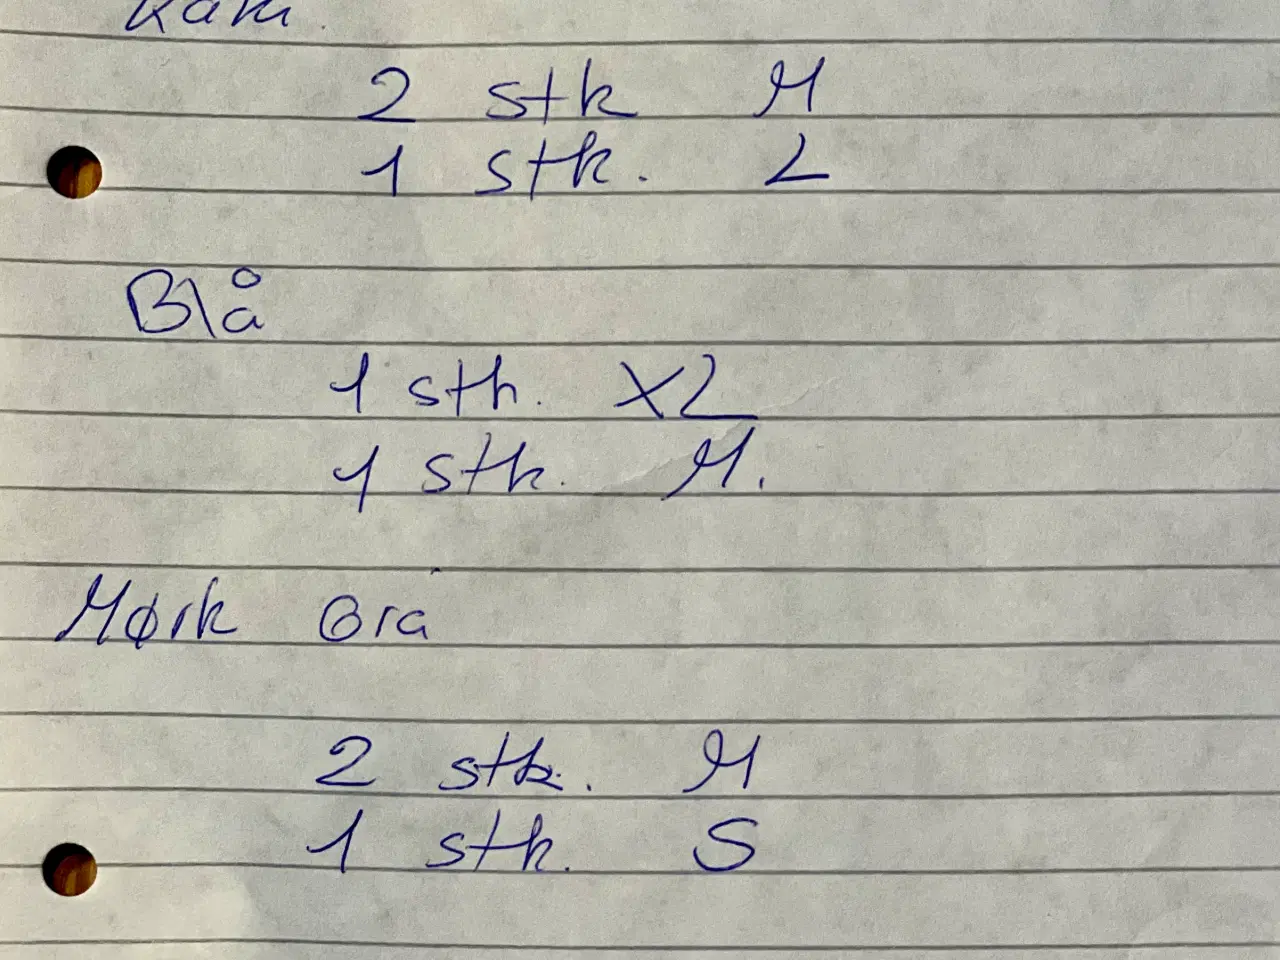 2 stk M
1 stk. L
Blå
1 stk. XL
1 stk. M.
Mørk Grå
2 stk. M
1 stk. S